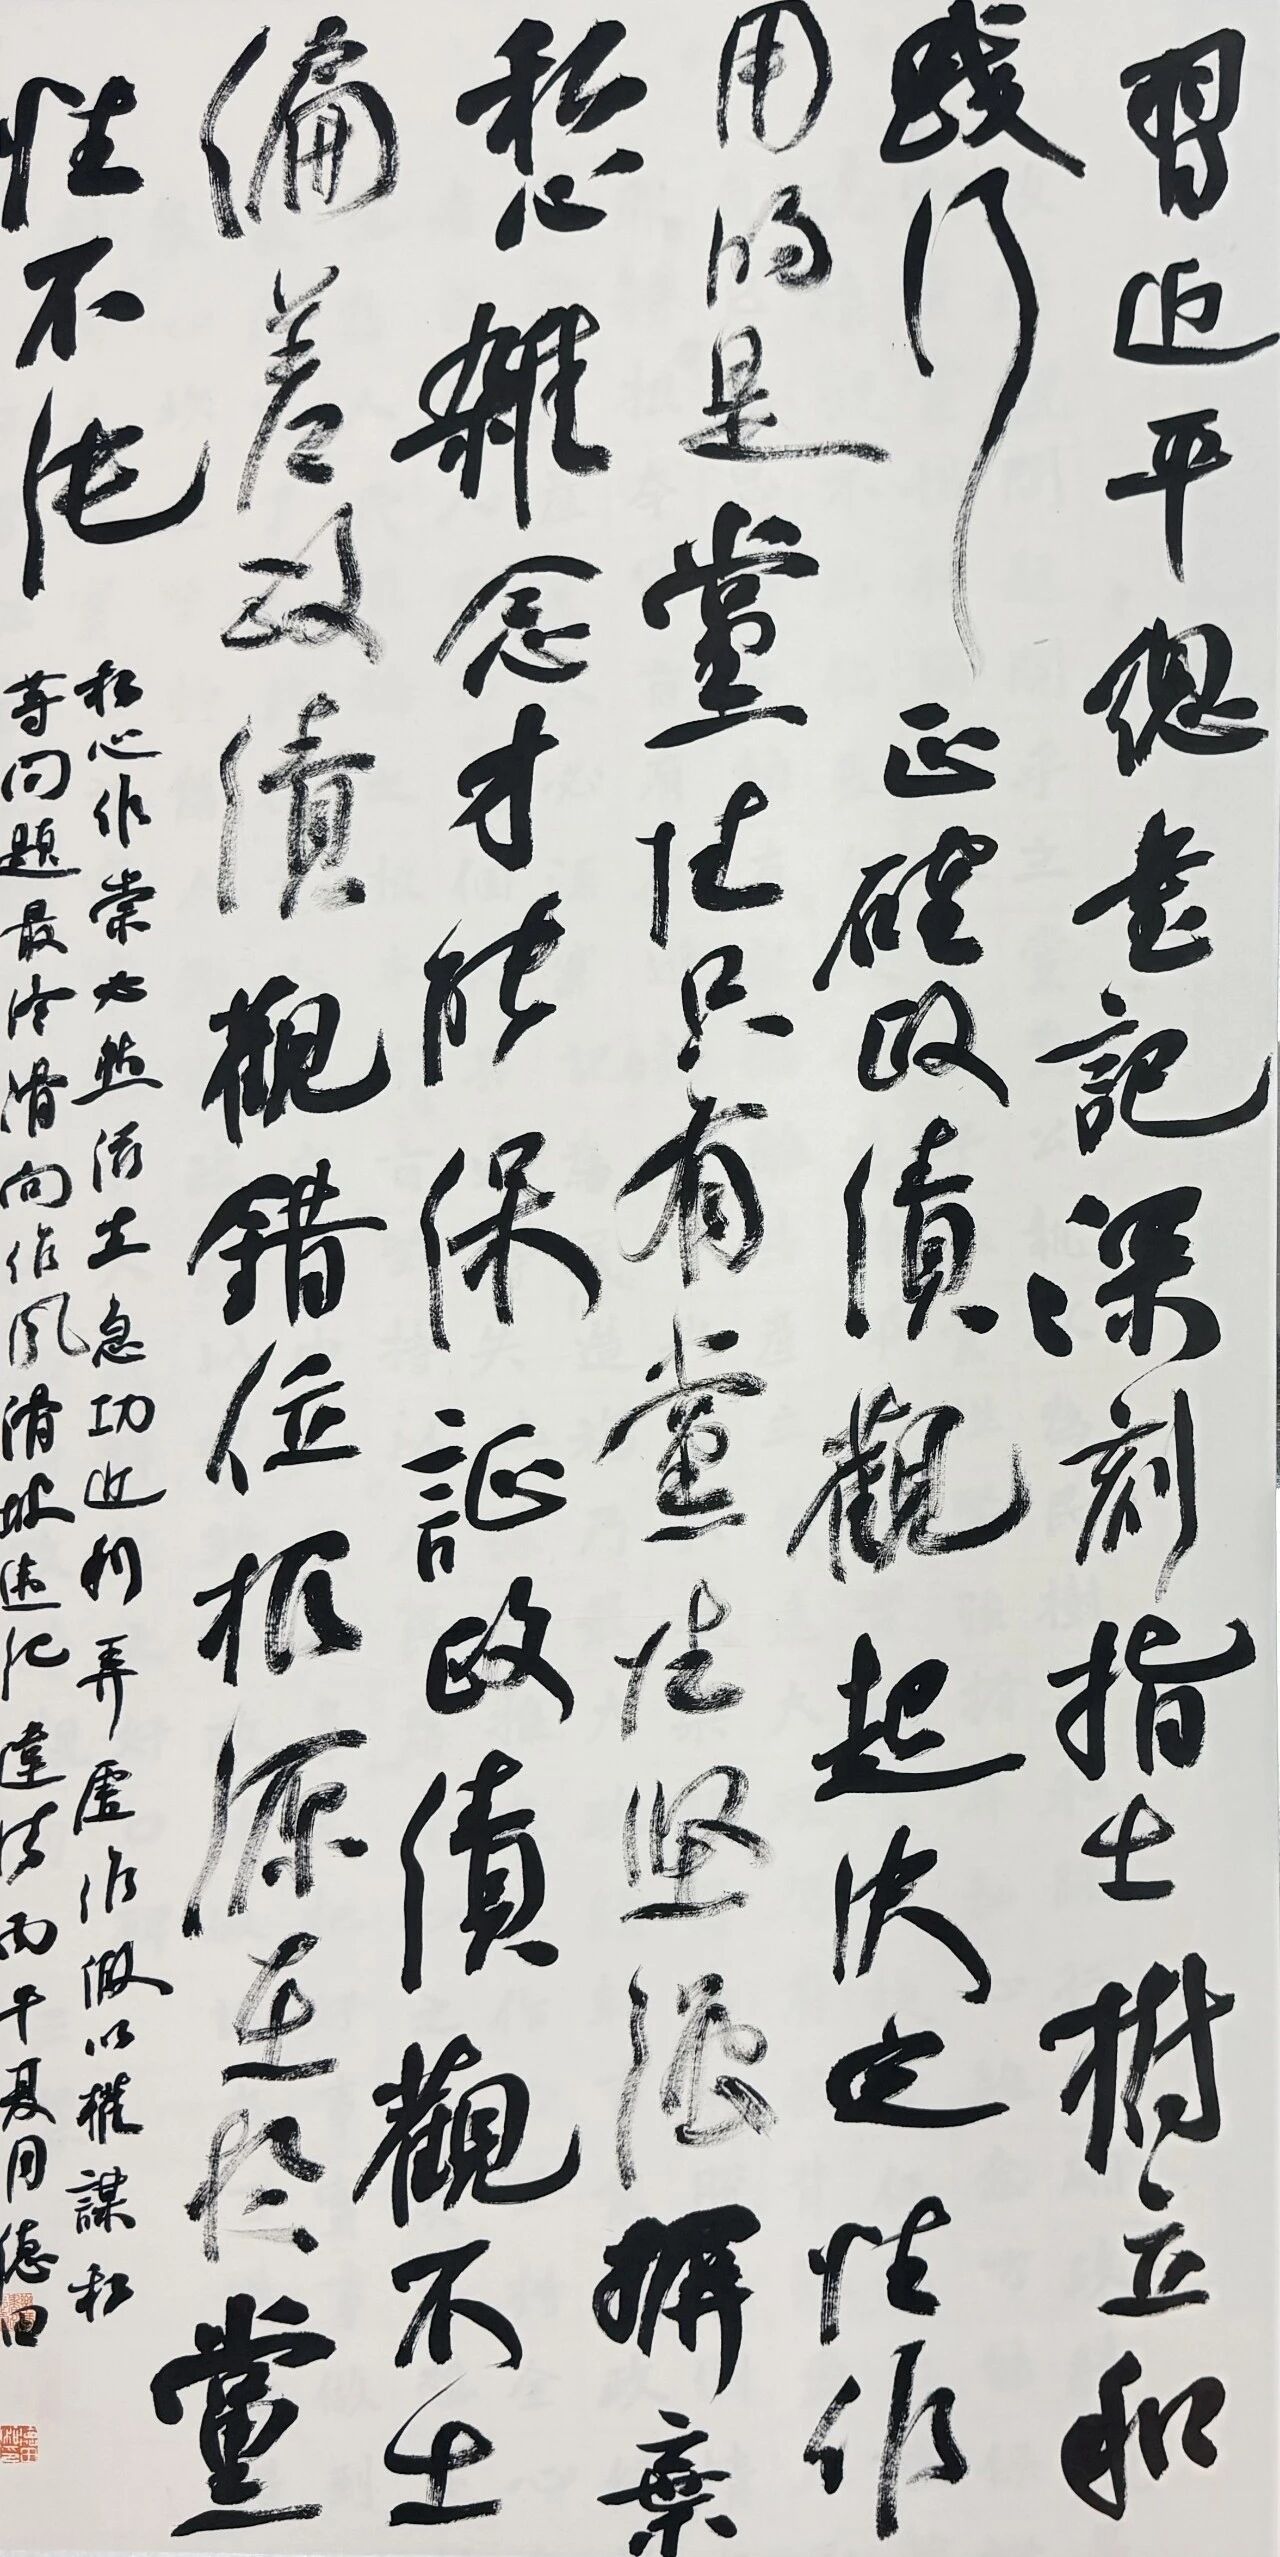 習近平總書記深刻指出樹立和
踐行正確政績觀起決定性作
用的是黨性只有黨性堅強摒棄
私心雜念才能保證政績觀不出
偏差政績觀錯位根源在於黨
性不純
私心作祟必然滋生急功近利弄虛作假以權謀私
等問題最終滑向作風滑坡違紀違法丙午夏月德田